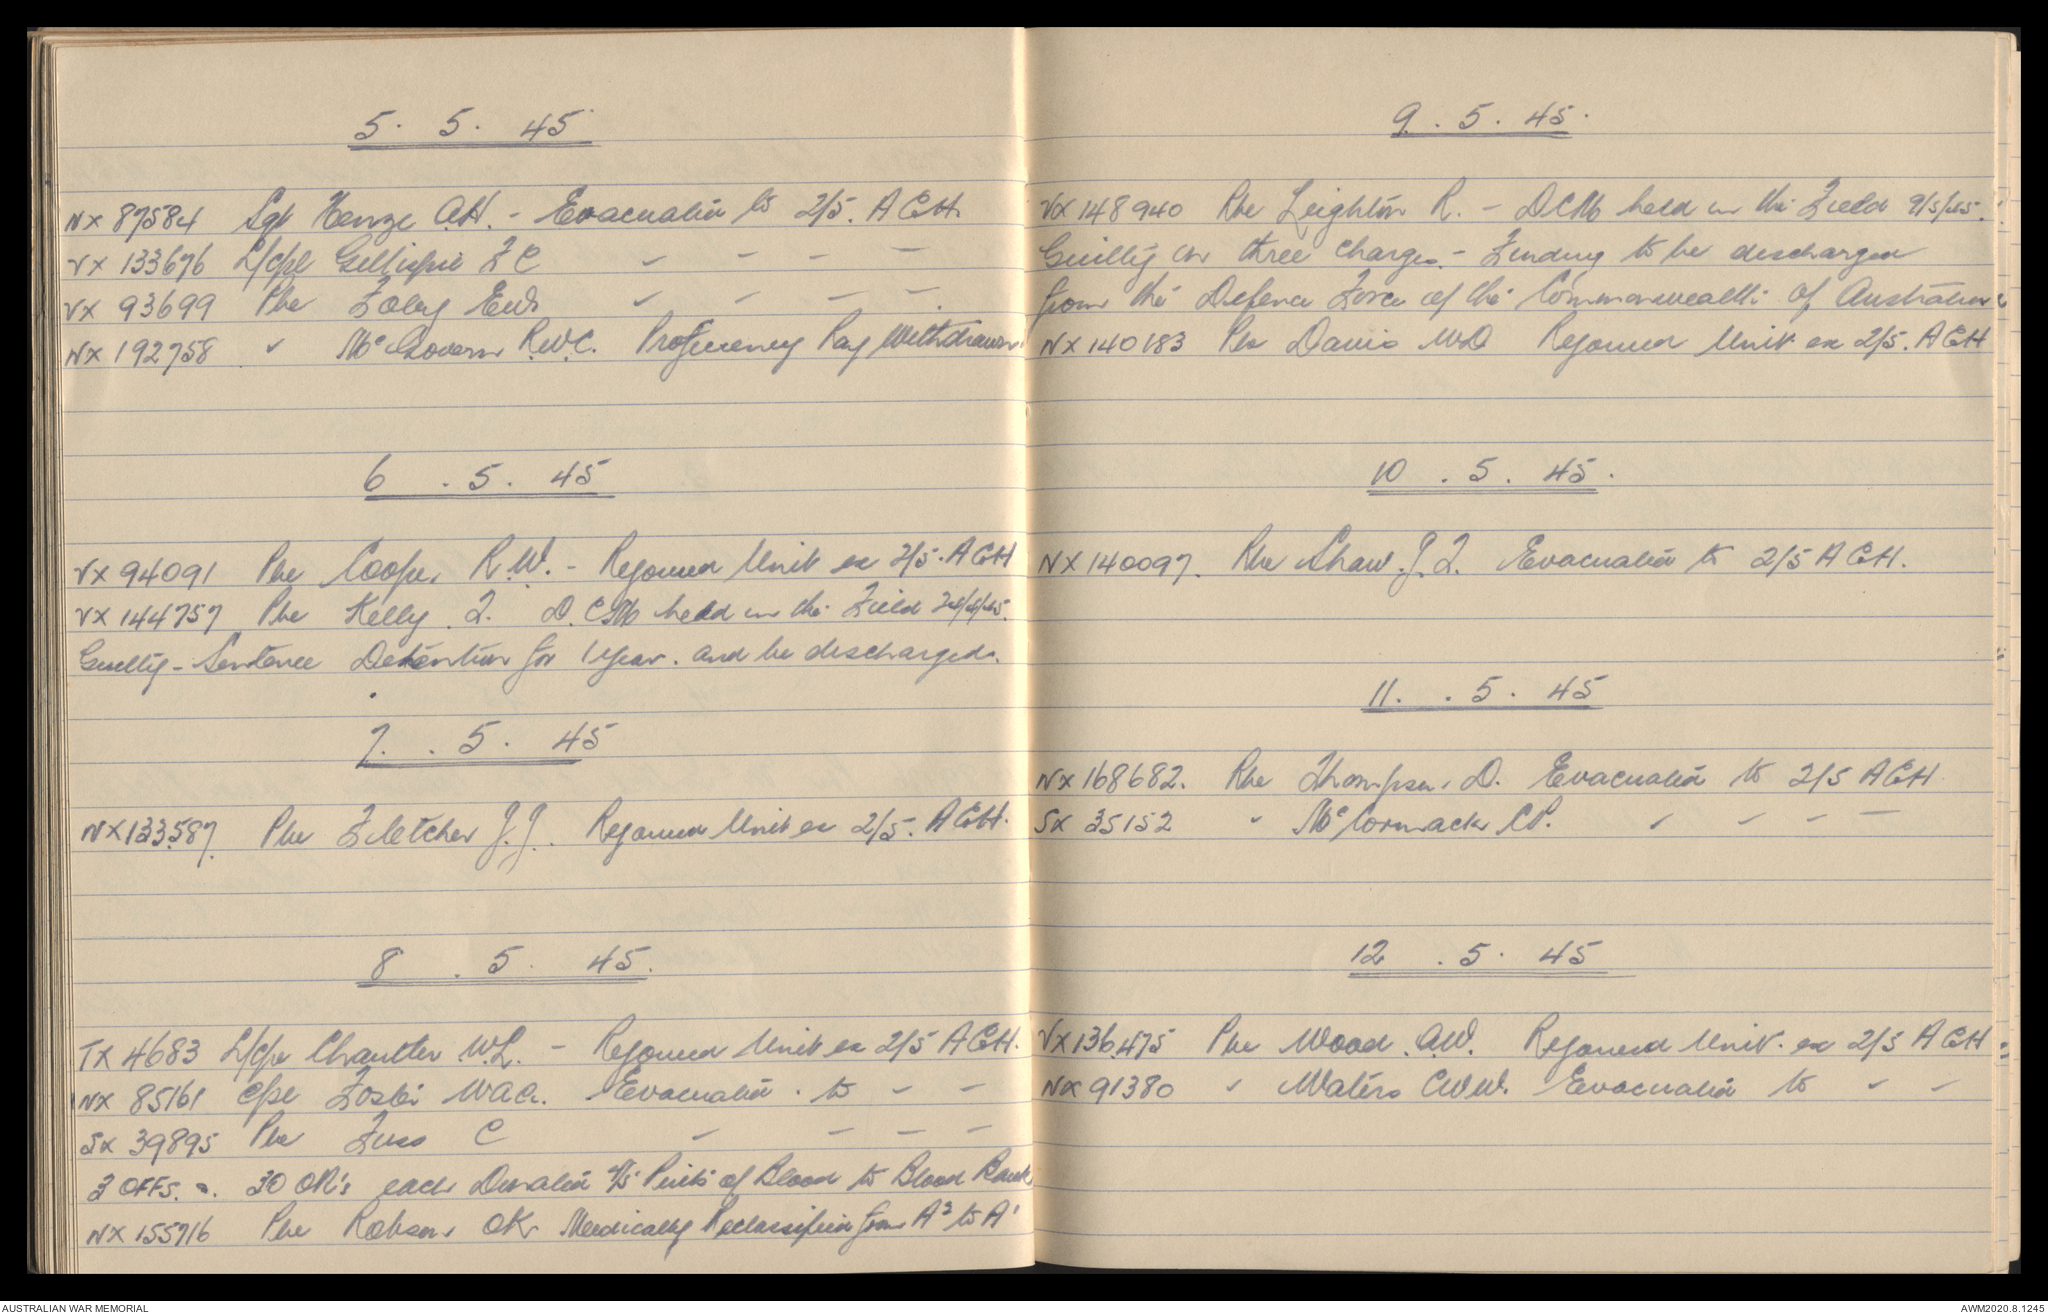 5. 5. 45
NX 87584 Sgt Henze A.H. - Evacuated to 2/5. A.G.H.
VX 133676 L/Cpl Gillispie F C " - - -
VX 93699 Pte Foley E " - - -
NX 192758 " McGovern R.W.C. Proficiency Pay Withdrawn
6 . 5 . 45
VX 94091 Pte Cooper R.W. - Rejoined Unit ex 2/5. A G H
VX 144757 Pte Kelly . D.C.M held in the Field /4/45.
Guilty - Sentence Detention for 1 year . and be discharged.
7 . 5 . 45
NX133587. Pte Fletcher J.J. Rejoined Unit ex 2/5. A.G.H.
8 . 5 . 45.
TX 4683 L/Cpl Chantler W.L. - Rejoined Unit ex 2/5 A.G.H.
NX 85161 Cpl Foster W A G. Evacuated . to - -
SX 39895 Pte Fuss C - - - -
3 OFFS. 30 OR's each Donated Pints of Blood to Blood Bank
NX 155716 Pte Robson OK Medically Reclassified from A2 to A1
9 . 5 . 45.
VX 148940 Pte Leighton R. - DCM held in the Field 9/5/45.
Guilty on three charges - Finding to be discharged
from the Defence Force of the Commonwealth of Australia
NX 140183 Pte Davis W D Rejoined Unit ex 2/5. A G H
10 . 5 . 45.
NX 140097. Pte Shaw. J. Evacuated to 2/5 A G H.
11. . 5 . 45
NX 168682. Pte Thompson D. Evacuated to 2/5 A G H
SX 35152 " McCormack C.P. " - - -
12 . 5 . 45
VX 136475 Pte Wood . A.W. Rejoined Unit. ex 2/5 A G H
NX 91380 " Waters C W W. Evacuated to " -
AUSTRALIAN WAR MEMORIAL
AWM2020.8.1245